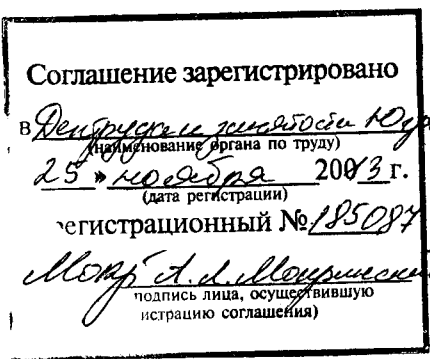 Соглашение зарегистрировано
в Деп труда и занятости Югр
(наименование органа по труду)
25 » ноября 2013 г.
(дата регистрации)
егистрационный № 185087
подпись лица, осуществившую
истрацию соглашения)